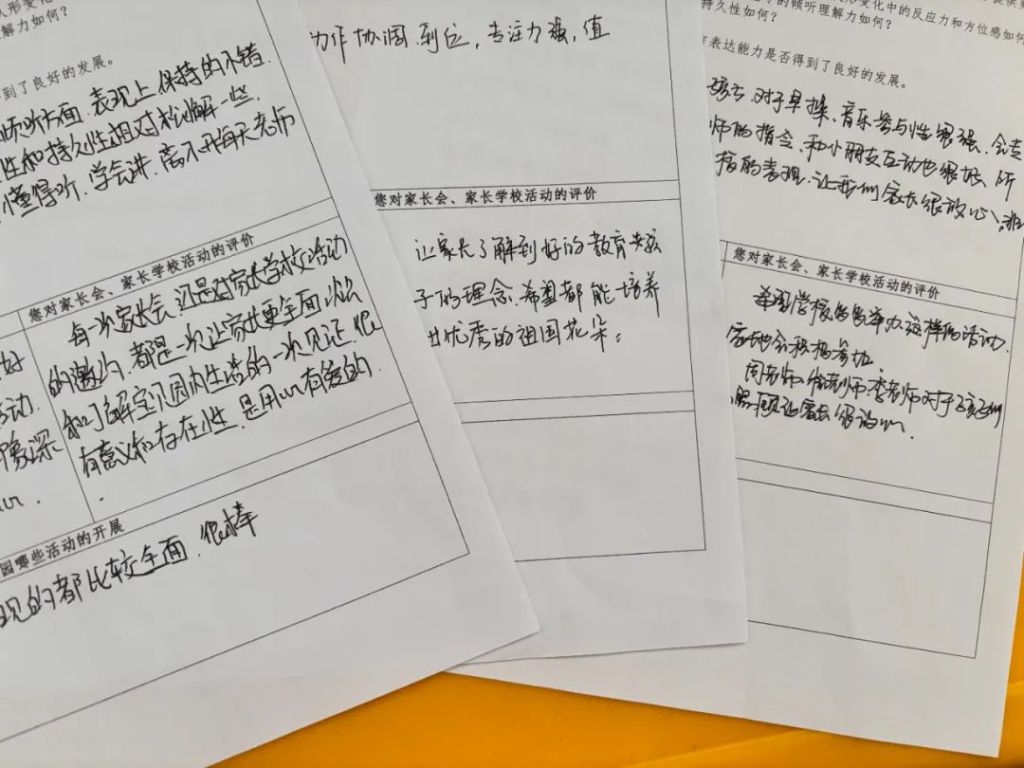 解力如何？
到了良好的发展。
倾听方面，表现上保持的不错，
性和持久性相对
解一些，
懂得听，学会讲，离不开每天老师
您对家长会、家长学校活动的评价
每一次家长会，还是对家长学校活动
的邀约，都是一次让家长更全面，
和了解宝贝园内生活的一次见证，很
有意义和存在性，是用心有爱的
好
活动
园哪些活动的开展
现的都比较全面，很棒
协调到位，专注力强，值
您对家长会、家长学校活动的评价
让家长了解到好的教育
子的理念，希望都能培养
出优秀的祖国花朵。
形变化中的反应力和方位感如何
的倾听理解力如何？
持久性如何？
表达能力是否得到了良好的发展。
孩子对于早操、音乐参与性很强，会
师的指令，和小朋友互动也很好，所
的表现，让我们家长很放心，
您对家长会、家长学校活动的评价
希望学校多多举办这样的活动，
家长会积极参加。
老师 李老师对于孩子们
照顾让家长很放心。